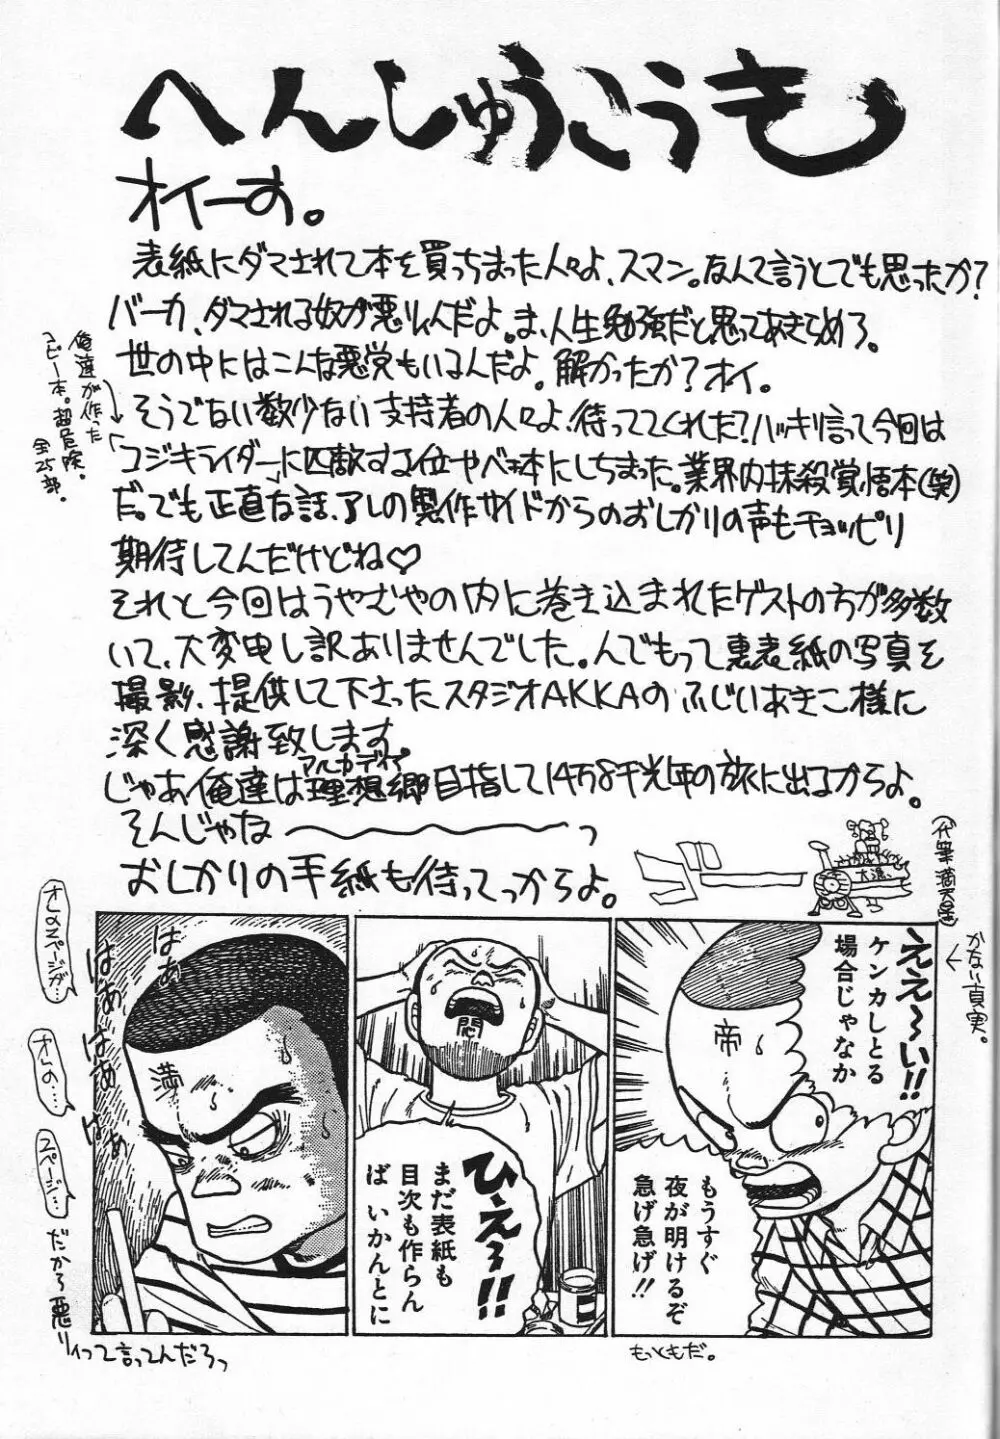 へんしゅうこうも
オイーす。
表紙にダマされて本を買っちまった人々よ、スマン。なんて言うとでも思ったか?
バーカ、ダマされる奴が悪りいんだよ。ま、人生勉強だと思ってあきらめろ。
世の中にはこんな悪党もいるんだよ。解かったか?オイ。
そうでない数少ない支持者の人々よ!待っててくれた?ハッキリ言って今回は
コジキライダーに匹敵する位やべえ本にしちまった。業界内抹殺覚悟本(笑)
だ。でも正直な話、アレの製作サイドからのおしかりの声もチョッピリ
期待してんだけどね♡
それと今回はうやむやの内に巻き込まれたゲストの方が多数
いて、大変申し訳ありませんでした。んでもって裏表紙の写真を
撮影、提供して下さったスタジオAKKAのふじいあきこ様に
深く感謝致します。
じゃあ俺達は理想郷目指して14万8千光年の旅に出るからよ。
アルカディア
そんじゃな〜っ
おしかりの手紙も待ってっからよ。
俺達が作った
コピー本。超危険。
全25部。
(代筆 満天星)
大漁
←かない真実。
ええ〜い!!
ケンカしとる
場合じゃなか
帝
もうすぐ
夜が明けるぞ
急げ急げ!!
もっともだ。
悶
ひええ!!
まだ表紙も
目次も作らん
ば いかんとに
はぁ
はぁ
はぁ
はぁ
満
オレのスペースが…
オレの…
スペース…
だから悪り
ィって言ってんだろっ